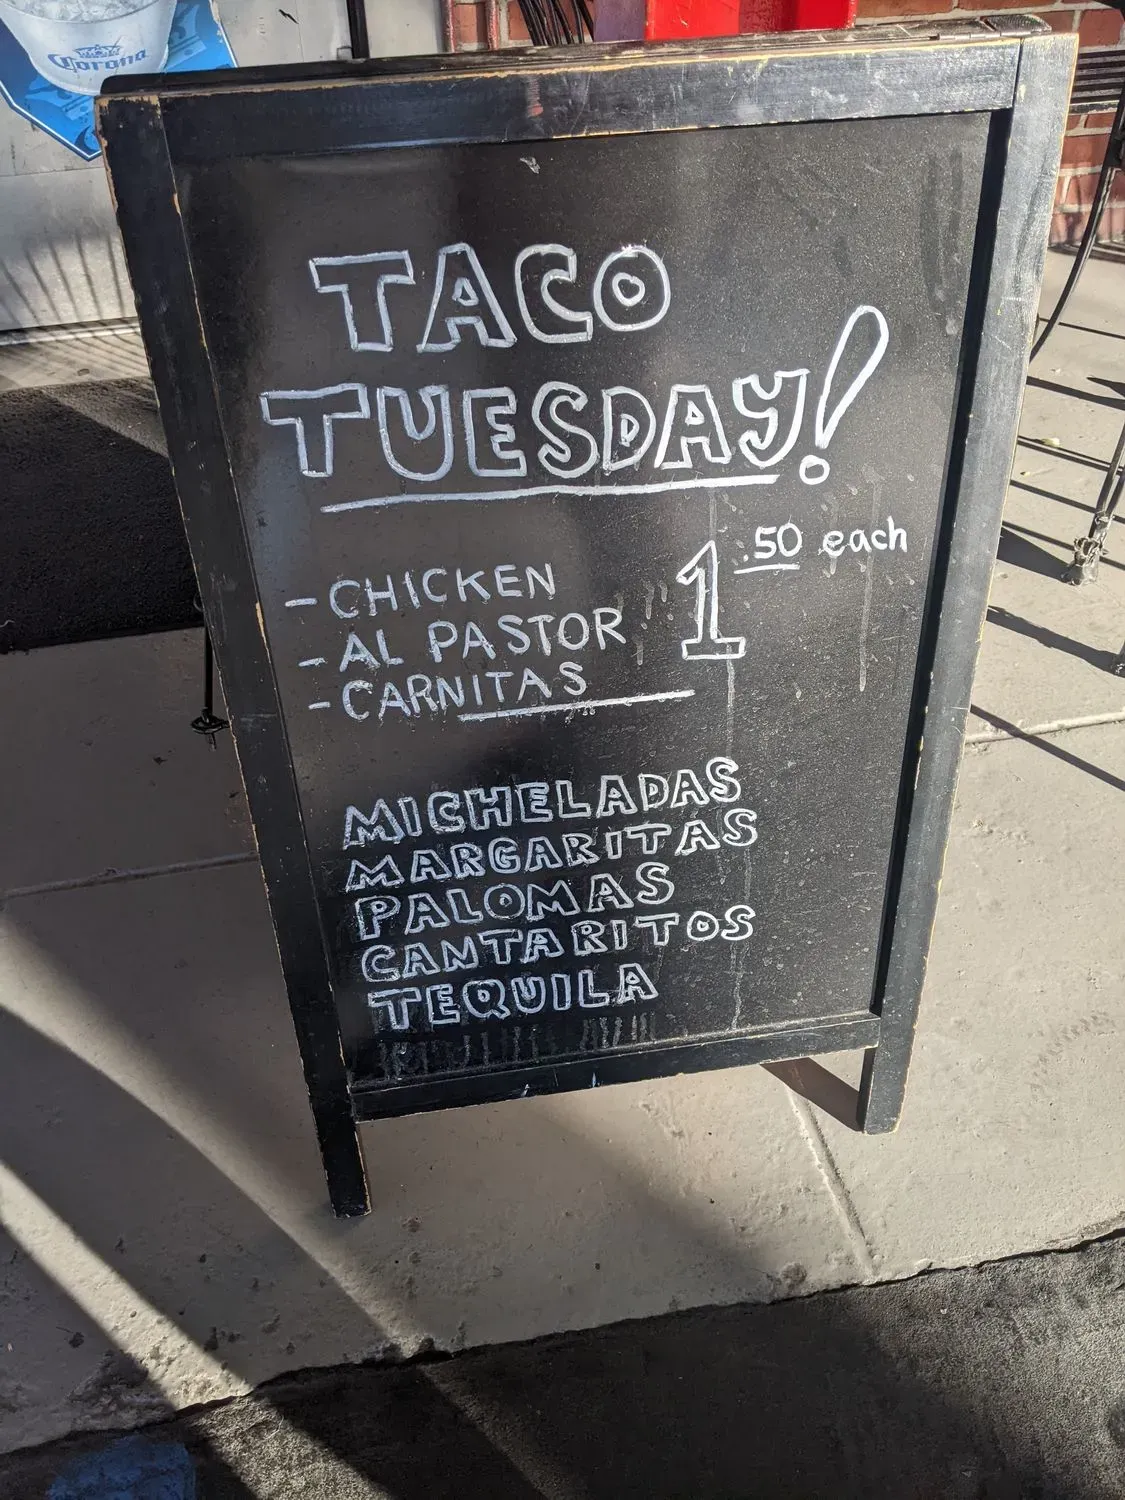 Corona
TACO
TUESDAY!
- CHICKEN
- AL PASTOR
- CARNITAS
1.50 each
MICHELADAS
MARGARITAS
PALOMAS
CANTARITOS
TEQUILA